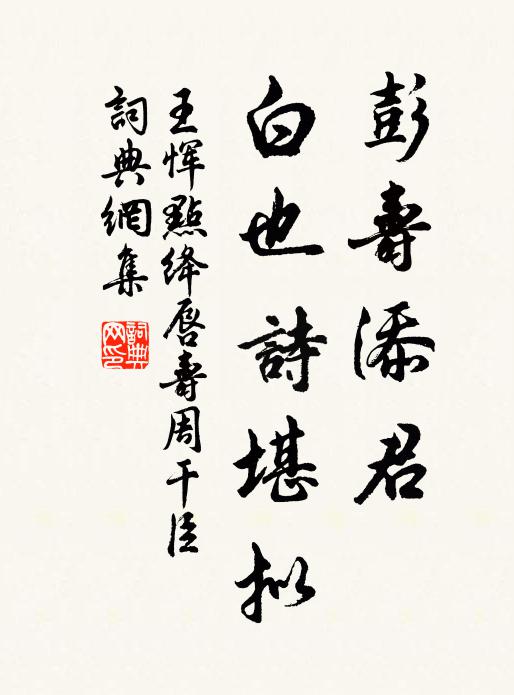 彭壽添君
白也詩堪擬
王惲點絳唇壽周干臣
詞典網集
詞典網印